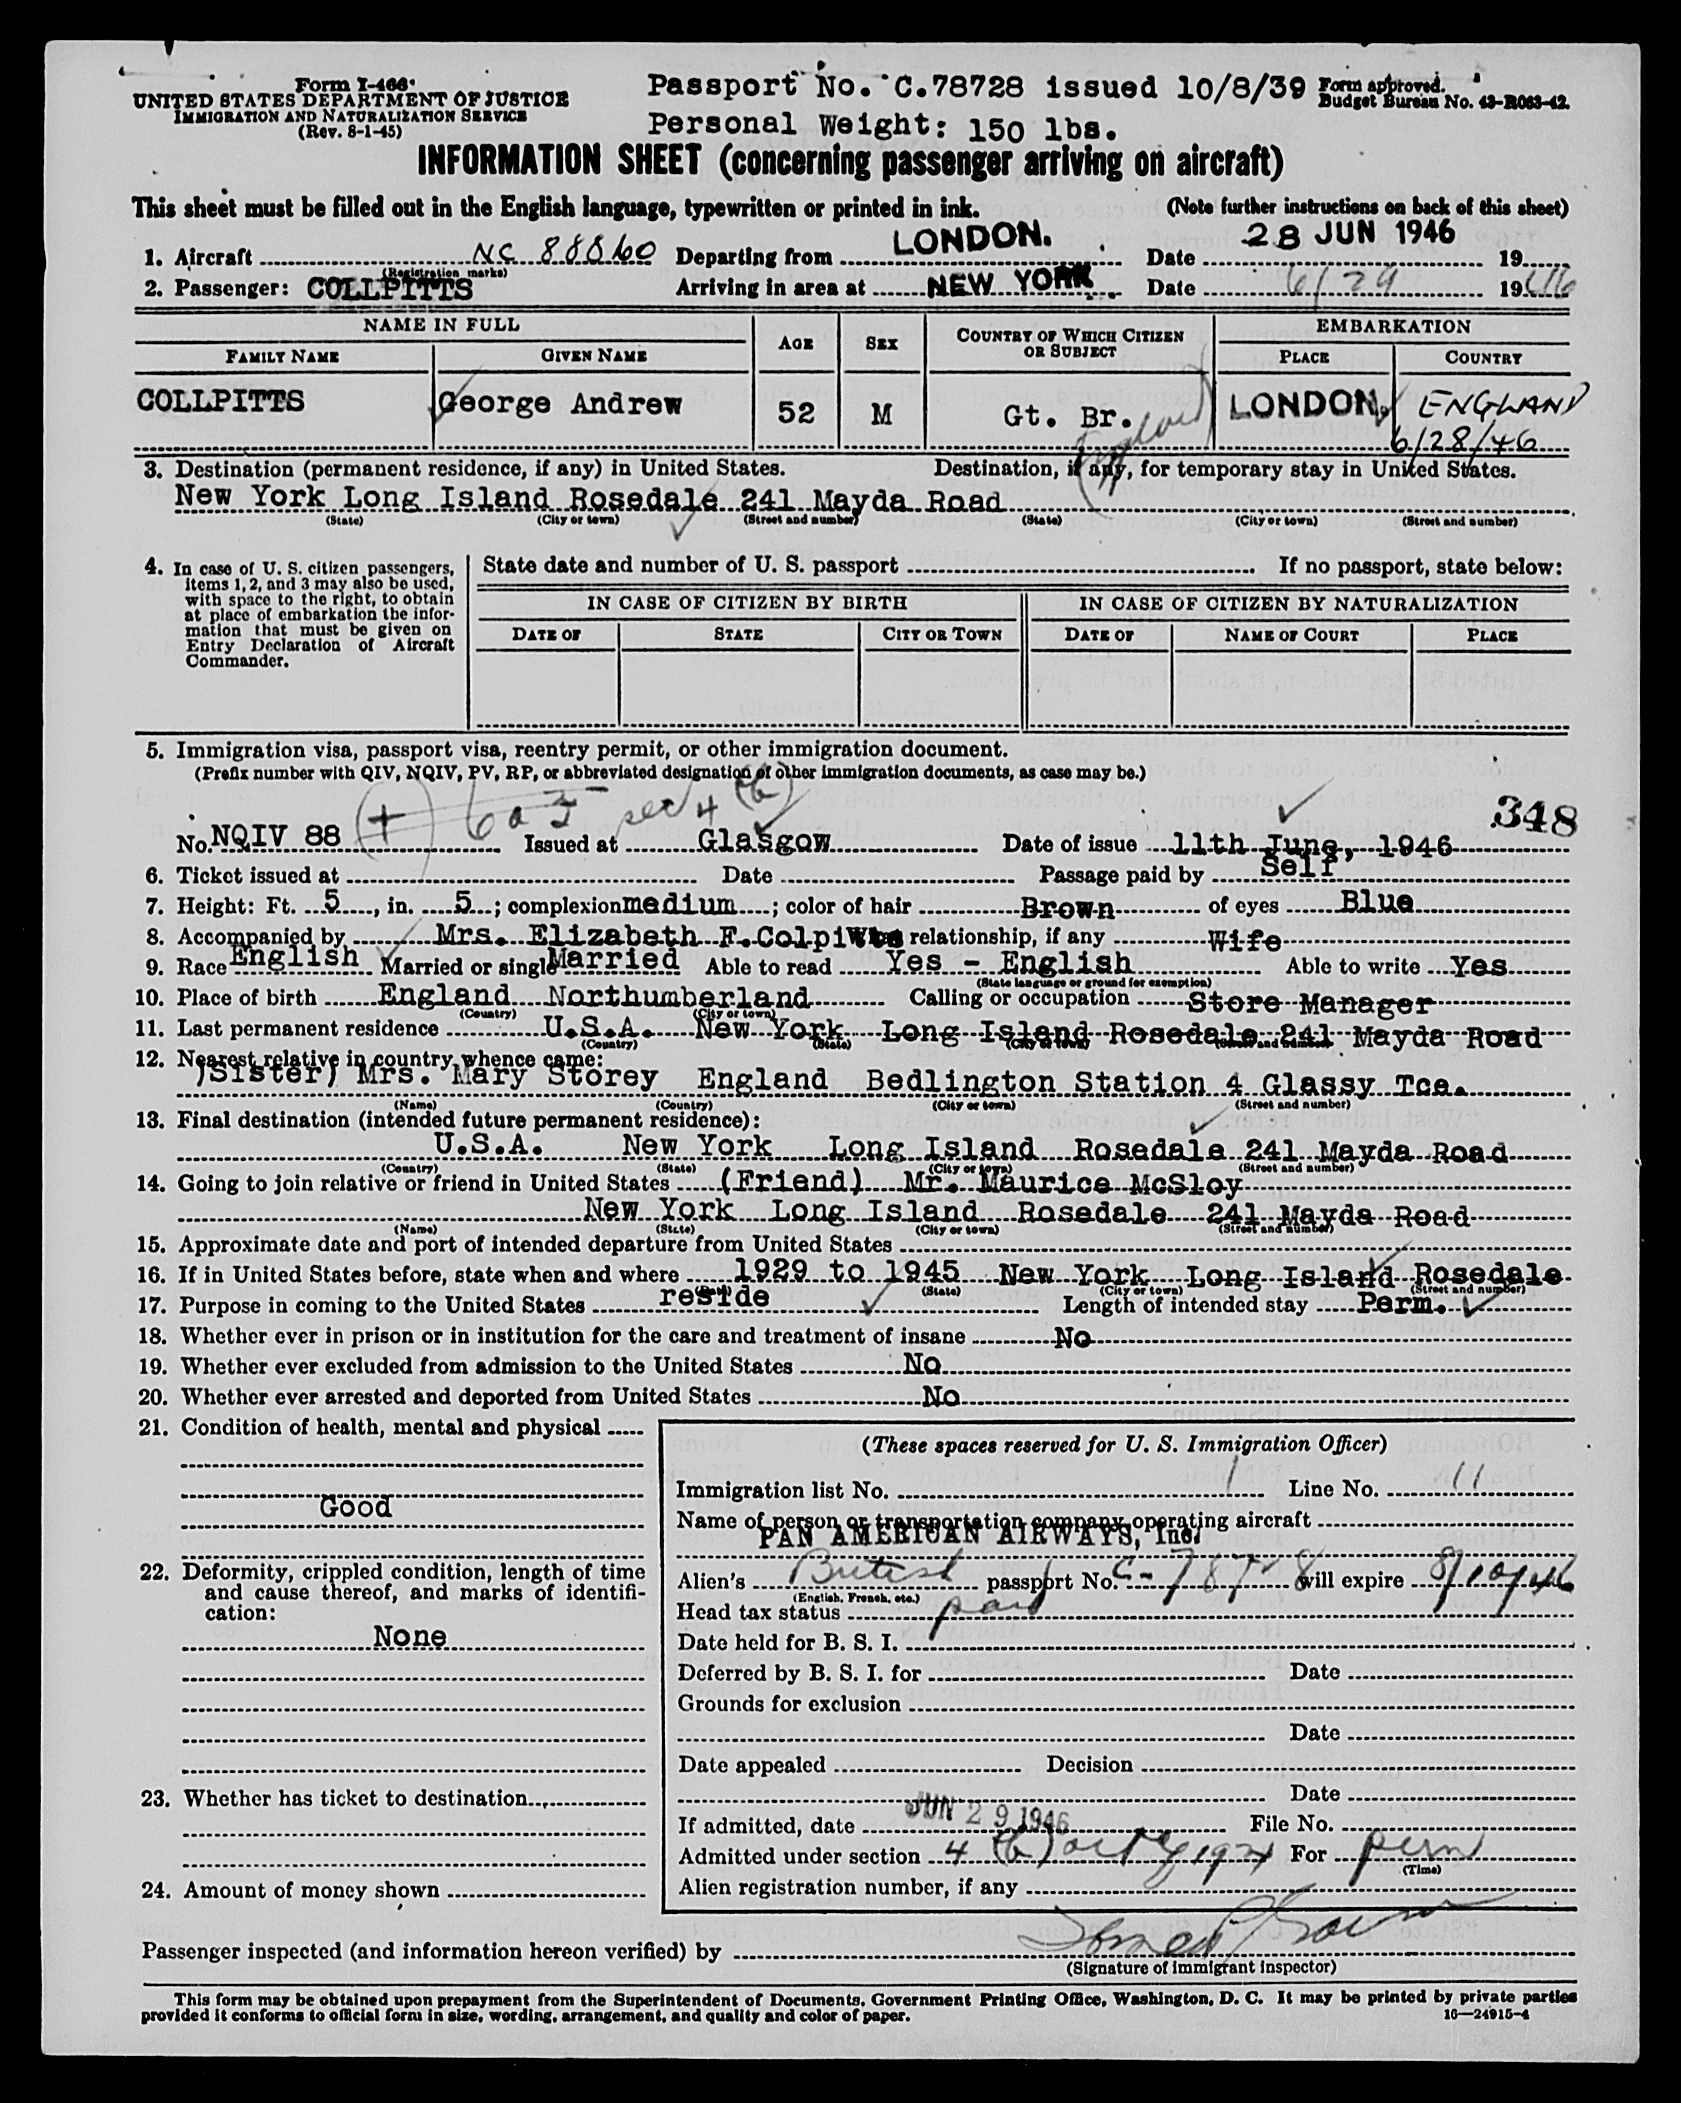 Form I-466
UNITED STATES DEPARTMENT OF JUSTICE
IMMIGRATION AND NATURALIZATION SERVICE
(Rev. 8-1-45)
Passport No. C.78728 issued 10/8/39
Personal Weight: 150 lbs.
Form approved.
Budget Bureau No. 43-R063-42.
INFORMATION SHEET (concerning passenger arriving on aircraft)
This sheet must be filled out in the English language, typewritten or printed in ink. (Note further instructions on back of this sheet)
1. Aircraft NC 88860 Departing from LONDON. Date 28 JUN 1946 19
(Registration marks)
2. Passenger: COLLPITTS Arriving in area at NEW YORK Date 6/29 1946
NAME IN FULL
FAMILY NAME GIVEN NAME AGE SEX COUNTRY OF WHICH CITIZEN OR SUBJECT
EMBARKATION
PLACE COUNTRY
COLLPITTS George Andrew 52 M Gt. Br. LONDON. ENGLAND
England 6/28/46
3. Destination (permanent residence, if any) in United States. Destination, if any, for temporary stay in United States.
New York Long Island Rosedale 241 Mayda Road
(State) (City or town) (Street and number) (State) (City or town) (Street and number)
4. In case of U. S. citizen passengers,
items 1, 2, and 3 may also be used,
with space to the right, to obtain
at place of embarkation the infor-
mation that must be given on
Entry Declaration of Aircraft
Commander.
State date and number of U. S. passport If no passport, state below:
IN CASE OF CITIZEN BY BIRTH IN CASE OF CITIZEN BY NATURALIZATION
DATE OF STATE CITY OR TOWN DATE OF NAME OF COURT PLACE
5. Immigration visa, passport visa, reentry permit, or other immigration document.
(Prefix number with QIV, NQIV, PV, RP, or abbreviated designation of other immigration documents, as case may be.)
sec 4 (b)
348
No. NQIV 88 Issued at Glasgow Date of issue 11th June, 1946
6. Ticket issued at Date Passage paid by Self
7. Height: Ft. 5, in. 5; complexion medium; color of hair Brown of eyes Blue
8. Accompanied by Mrs. Elizabeth F. Colpitts relationship, if any Wife
9. Race English Married or single Married Able to read Yes - English Able to write Yes
(State language or ground for exemption)
10. Place of birth England Northumberland Calling or occupation Store Manager
(Country) (City or town)
11. Last permanent residence U.S.A. New York Long Island Rosedale 241 Mayda Road
(Country) (State) (City or town) (Street and number)
12. Nearest relative in country whence came:
)Sister) Mrs. Mary Storey England Bedlington Station 4 Glassy Tce.
(Name) (Country) (City or town) (Street and number)
13. Final destination (intended future permanent residence):
U.S.A. New York Long Island Rosedale 241 Mayda Road
(Country) (State) (City or town) (Street and number)
14. Going to join relative or friend in United States (Friend) Mr. Maurice McSloy
New York Long Island Rosedale 241 Mayda Road
(Name) (State) (City or town) (Street and number)
15. Approximate date and port of intended departure from United States
16. If in United States before, state when and where 1929 to 1945 New York Long Island Rosedale
(State) (City or town) (Street and number)
17. Purpose in coming to the United States reside Length of intended stay Perm.
18. Whether ever in prison or in institution for the care and treatment of insane No
19. Whether ever excluded from admission to the United States No
20. Whether ever arrested and deported from United States No
21. Condition of health, mental and physical
Good
22. Deformity, crippled condition, length of time
and cause thereof, and marks of identifi-
cation:
None
23. Whether has ticket to destination
24. Amount of money shown
(These spaces reserved for U. S. Immigration Officer)
Immigration list No. 1 Line No. 11
Name of person or transportation company operating aircraft
PAN AMERICAN AIRWAYS, Inc.
Alien's British passport No. C-78728 will expire 8/10/46
(English, French, etc.)
Head tax status paid
Date held for B. S. I.
Deferred by B. S. I. for Date
Grounds for exclusion
Date
Date appealed Decision
Date
If admitted, date JUN 29 1946 File No.
Admitted under section 4 (b) act of 1924 For perm
(Time)
Alien registration number, if any
Passenger inspected (and information hereon verified) by
(Signature of immigrant inspector)
This form may be obtained upon prepayment from the Superintendent of Documents, Government Printing Office, Washington, D. C. It may be printed by private parties
provided it conforms to official form in size, wording, arrangement, and quality and color of paper. 16—24915-4